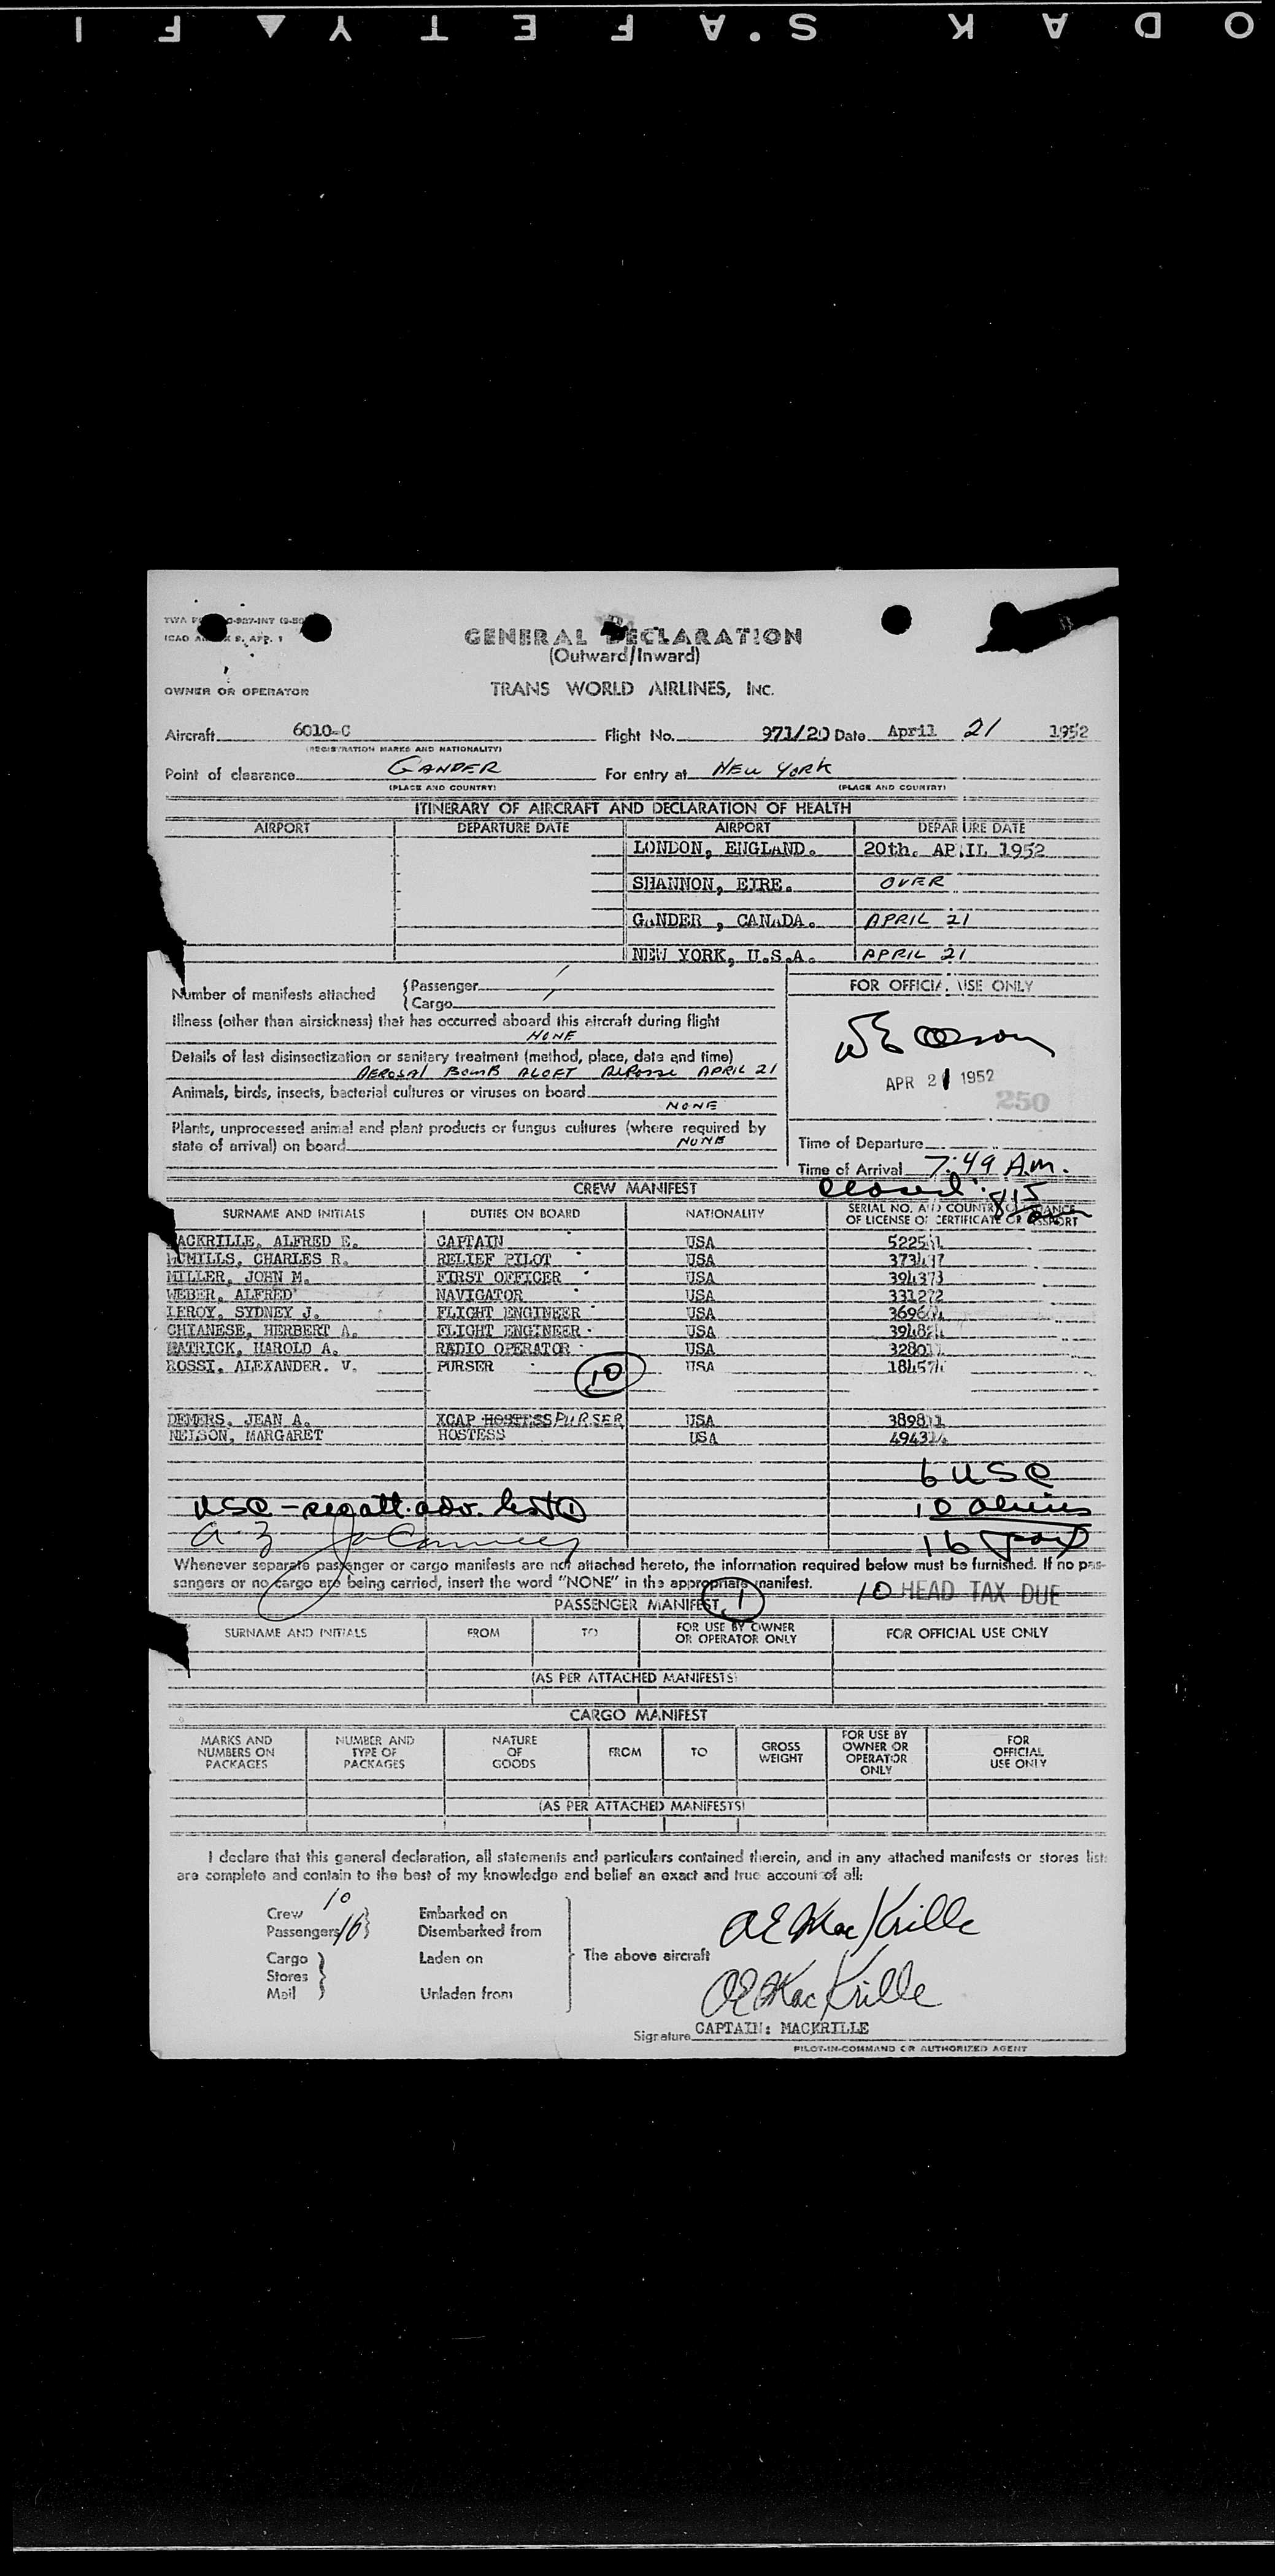 ODAK S.A.F.E.T.Y F I
ICAO
GENERAL DECLARATION
(Outward/Inward)
OWNER OR OPERATOR TRANS WORLD AIRLINES, INC.
Aircraft 6010-C Flight No. 971/20 Date April 21 1952
(REGISTRATION MARKS AND NATIONALITY)
Point of clearance GANDER For entry at NEW YORK
(PLACE AND COUNTRY) (PLACE AND COUNTRY)
ITINERARY OF AIRCRAFT AND DECLARATION OF HEALTH
AIRPORT DEPARTURE DATE AIRPORT DEPARTURE DATE
LONDON, ENGLAND. 20th. APRIL 1952
SHANNON, EIRE. OVER
GANDER , CANADA. APRIL 21
NEW YORK, U.S.A. APRIL 21
Number of manifests attached Passenger /
Cargo /
FOR OFFICIAL USE ONLY
Illness (other than airsickness) that has occurred aboard this aircraft during flight
NONE
Details of last disinsectization or sanitary treatment (method, place, date and time)
AEROSAL BOMB ALOFT APRIL 21
APR 21 1952
250
Animals, birds, insects, bacterial cultures or viruses on board
NONE
Plants, unprocessed animal and plant products or fungus cultures (where required by
state of arrival) on board NONE
Time of Departure
Time of Arrival 7:49 A.M.
closed: 815
CREW MANIFEST
SURNAME AND INITIALS DUTIES ON BOARD NATIONALITY SERIAL NO. AND COUNTRY OF ISSUANCE
OF LICENSE OR CERTIFICATE OR PASSPORT
MACKRILLE, ALFRED E. CAPTAIN USA
MCMILLS, CHARLES R. RELIEF PILOT USA
MILLER, JOHN M. FIRST OFFICER USA 394373
WEBER, ALFRED NAVIGATOR USA 331272
LEROY, SYDNEY J. FLIGHT ENGINEER USA
CHIANESE, HERBERT A. FLIGHT ENGINEER USA
MATRICK, HAROLD A. RADIO OPERATOR USA
ROSSI, ALEXANDER. V. PURSER USA
10
DEMERS, JEAN A. XCAP HOSTESS PURSER USA
NELSON, MARGARET HOSTESS USA
6 USC
USC - sep att. adv. list 1 10 aliens
16 pax
Whenever separate passenger or cargo manifests are not attached hereto, the information required below must be furnished. If no pas-
sengers or no cargo are being carried, insert the word "NONE" in the appropriate manifest.
10 HEAD TAX DUE
PASSENGER MANIFEST 1
SURNAME AND INITIALS FROM TO FOR USE BY OWNER
OR OPERATOR ONLY FOR OFFICIAL USE ONLY
(AS PER ATTACHED MANIFESTS)
CARGO MANIFEST
MARKS AND
NUMBERS ON
PACKAGES NUMBER AND
TYPE OF
PACKAGES NATURE
OF
GOODS FROM TO GROSS
WEIGHT FOR USE BY
OWNER OR
OPERATOR
ONLY FOR
OFFICIAL
USE ONLY
(AS PER ATTACHED MANIFESTS)
I declare that this general declaration, all statements and particulars contained therein, and in any attached manifests or stores list
are complete and contain to the best of my knowledge and belief an exact and true account of all:
Crew 10 Embarked on
Passengers 16 Disembarked from
Cargo Laden on The above aircraft
Stores
Mail Unladen from
AE MacKrille
AE MacKrille
Signature CAPTAIN: MACKRILLE
PILOT-IN-COMMAND OR AUTHORIZED AGENT